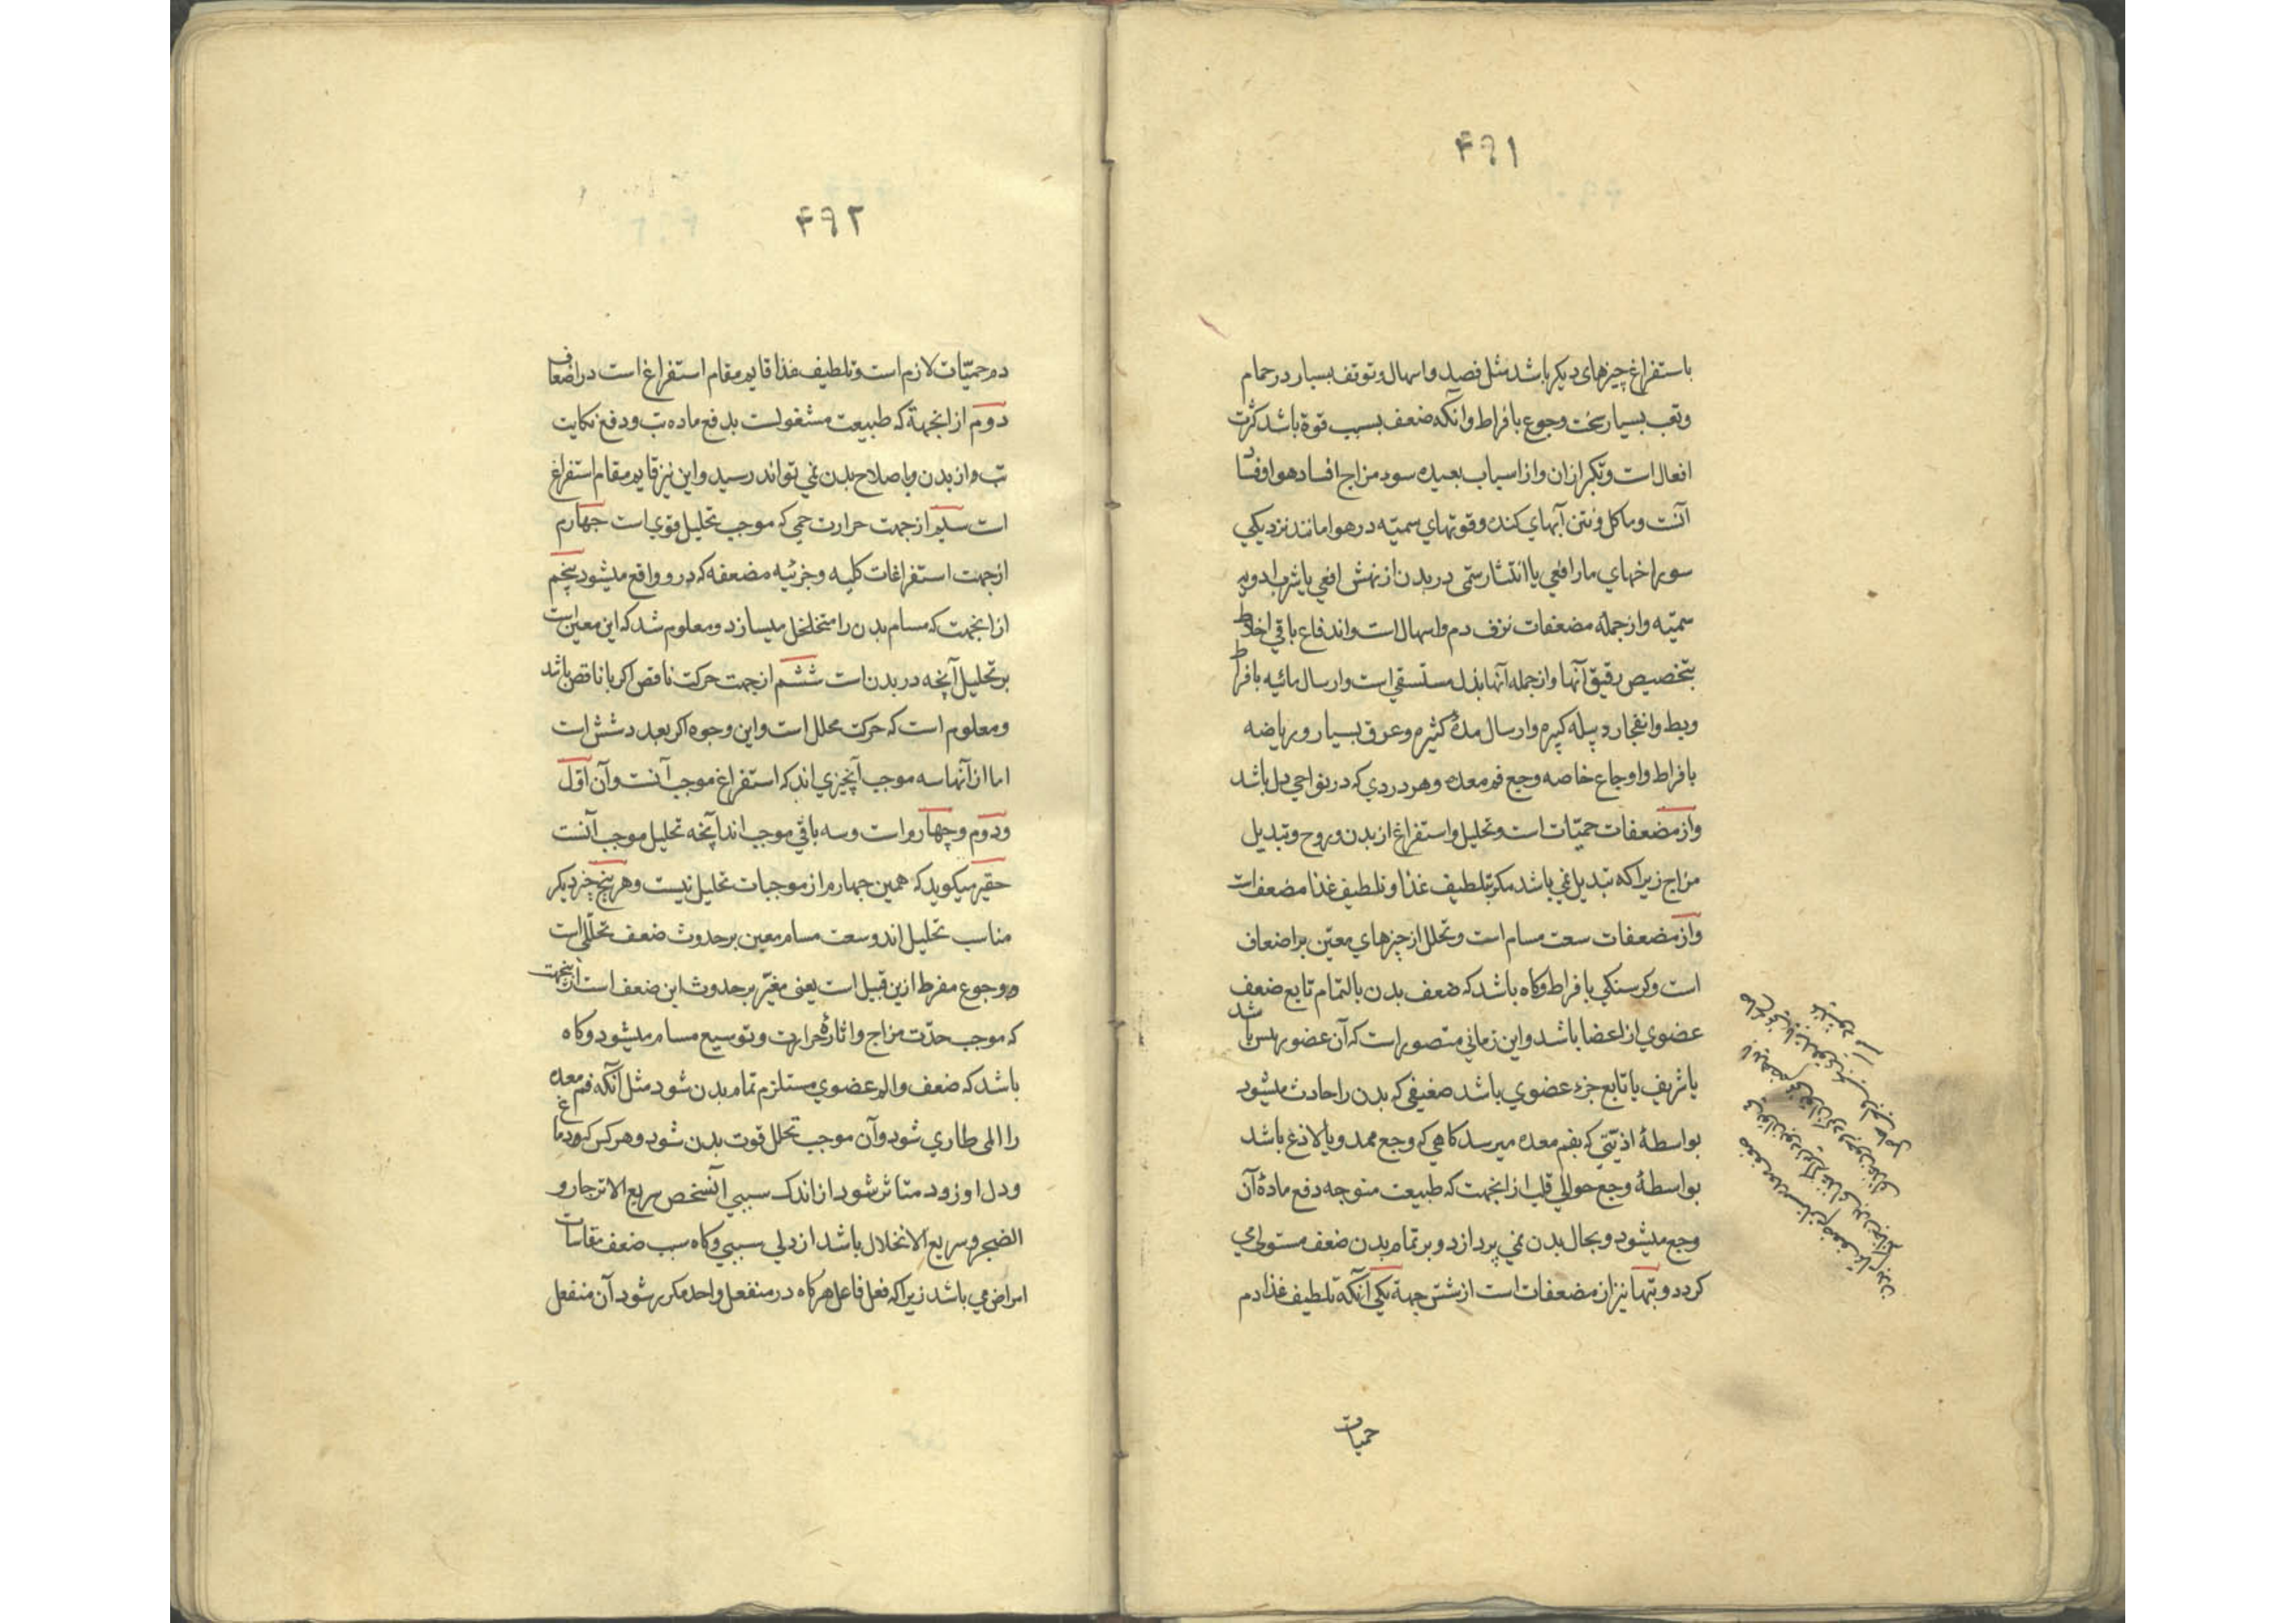 ۴۹۱
باستفراغ چیزهای دیکر باشد مثل فصد و اسهال و توقف بسیار در حمام
و تعب بسیار سخت و جوع بافراط و آنکه ضعف بسبب قوة باشد کثرت
افعال است و تکرار آن و از اسباب بعیده سوء مزاج افساد هوا و فساد
آنست و ماکل و نتن آبهای کنده و قوتهای سمیّه در هوا مانند نزدیکی
سوراخهای مار افعی یا انتشار سمی در بدن از نهش افعی یا شرب ادویه
سمیّه و از جمله مضعفات نزف دم و اسهال است و اندفاع باقی اخلاط
بتخصیص رقیق آنها و از جمله آنها بذل مستسقی است و ارسال مائیه بافراط
و بط و انفجار دبیله کبیره و ارسال مدهٔ کثیره و عرق بسیار و ریاضه
بافراط و اوجاع خاصه وجع فم معده و هر دردی که در نواحی دل باشد
و از مضعفات حمیّات است و تحلیل و استفراغ از بدن و روح و تبدیل
مزاج زیرا که تبدیل نمی باشد مکر بتلطیف غذا و تلطیف غذا مضعف است
و از مضعفات سعت مسام است و تحلل از چیزهای معیّن بر اضعاف
است و کرسنکی بافراط و کاه باشد که ضعف بدن بالتمام تابع ضعف
عضوی از اعضا باشد و این زمانی متصور است که آن عضو رئیس باشد
یا شریف یا تابع جزء عضوی باشد ضعیفی که بدن را حادث میشود
بواسطهٔ اذیّتی که بفم معده میرسد کاهی که وجع ممدد و یا لاذع باشد
بواسطهٔ وجع حوالی قلب از انجهت که طبیعت متوجه دفع مادهٔ آن
وجع میشود و بحال بدن نمی پردازد و بر تمام بدن ضعف مستولی می
کردد و تبها نیز از مضعفات است از شش جهة یکی آنکه تلطیف غذا دم
حمیات
۴۹۲
در حمیّات لازم است و تلطیف غذا قایم مقام استفراغ است در اضعاف
دوم از انجهة که طبیعت مشغولست بدفع ماده تب و دفع نکایت
تب و از بدن و باصلاح بدن نمی تواند رسید و این نیز قایم مقام استفراغ
است سیم از جهت حرارت حمی که موجب تحلیل قوی است جهارم
از جهت استفراغات کلیه و جزئیه مضعفه که درو واقع میشود پنجم
از انجهت که مسام بدن را متخلخل میسازد و معلوم شد که این معین است
بر تحلیل آنچه در بدن است ششم از جهت حرکت نافض اکر با نافض باشد
و معلوم است که حرکت محلل است و این وجوه اکر بعدد شش است
اما از آنها سه موجب آنچیزی اند که استفراغ موجب آنست و آن اوّل
و دوم و چهارم است و سه باقی موجب اند آنچه تحلیل موجب آنست
حقیر میکوید که همین جهارم از موجبات تحلیل نیست و هر پنج جزء دیکر
مناسب تحلیل اند و سعت مسام معین بر حدوث ضعف تحللی است
و جوع مفرط ازین قبیل است یعنی مغیّر بر حدوث این ضعف است از ینجهت
که موجب حدّت مزاج و اثارهٔ حرارت و توسیع مسام میشود و کاه
باشد که ضعف و الم عضوی مستلزم تمام بدن شود مثل آنکه فم معده
را المی طاری شود و آن موجب تحلل قوت بدن شود و هر کس که بود دماغ
و دل او زود متاثر شود از اندک سببی آنشخص سریع الانزجار و
الضجر و سریع الانخلال باشد از دلی سببی و کاه سبب ضعف مقاسات
امراض می باشد زیرا که فعل فاعل هرکاه در منفعل واحد مکرر شود آن منفعل